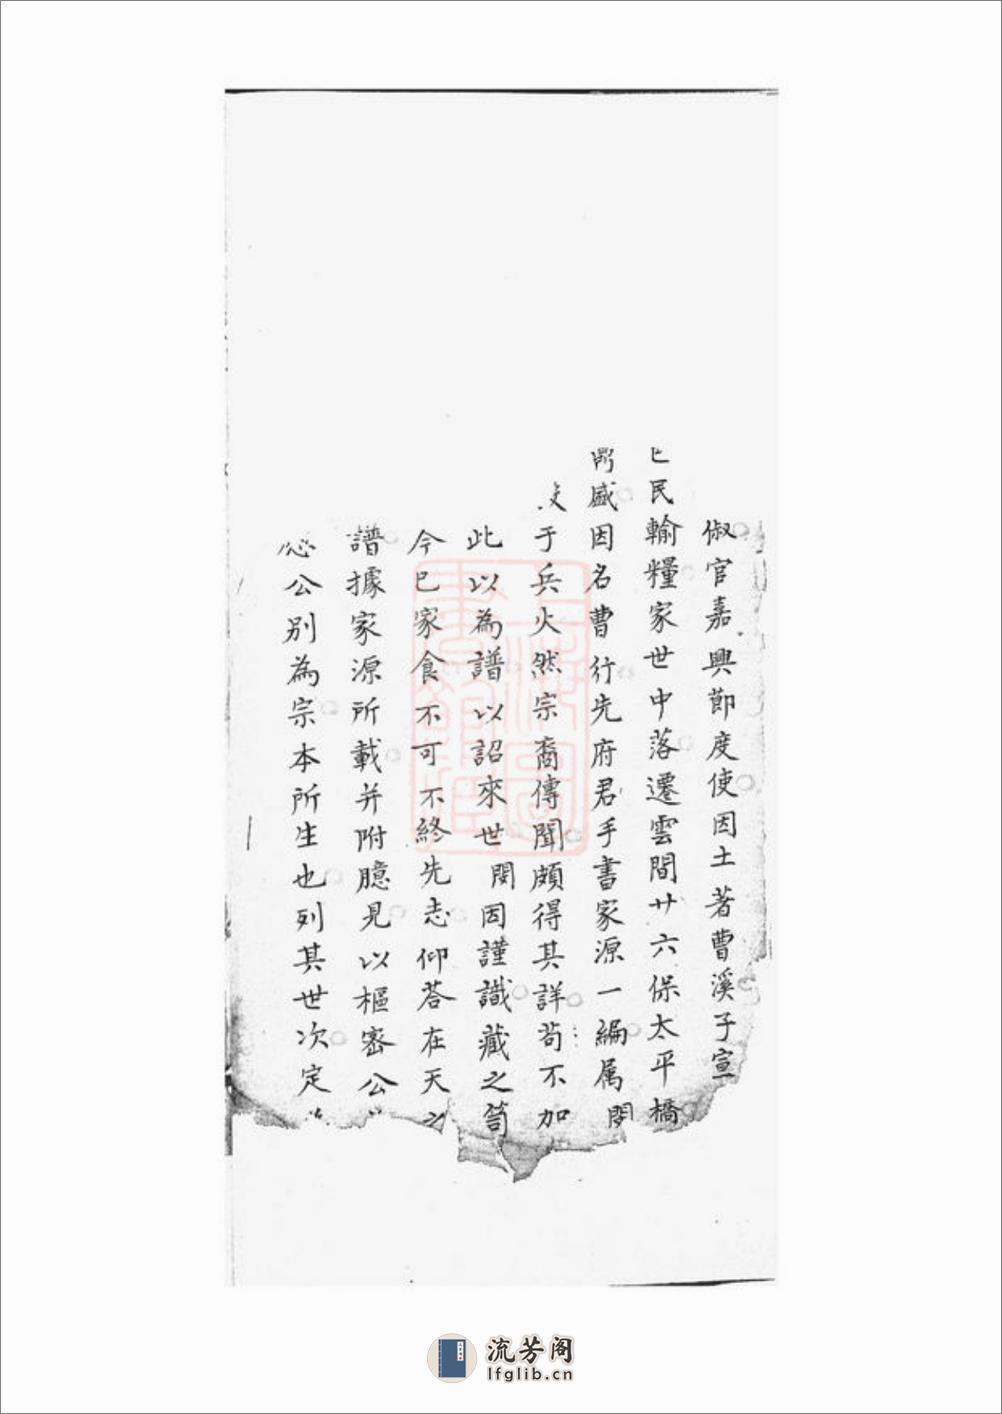 俶官嘉興節度使因土著曹溪子宣
民輸糧家世中落遷雲間廿六保太平橋
盛因名曹行先府君手書家源一編属閔
于兵火然宗裔傳聞頗得其詳苟不加
此以為譜以詔來世閔因謹識藏之笥
今已家食不可不終先志仰荅在天之
譜據家源所載并附臆見以樞密公
公別為宗本所生也列其世次定
上海圖書館藏
流芳阁
lfglib.cn